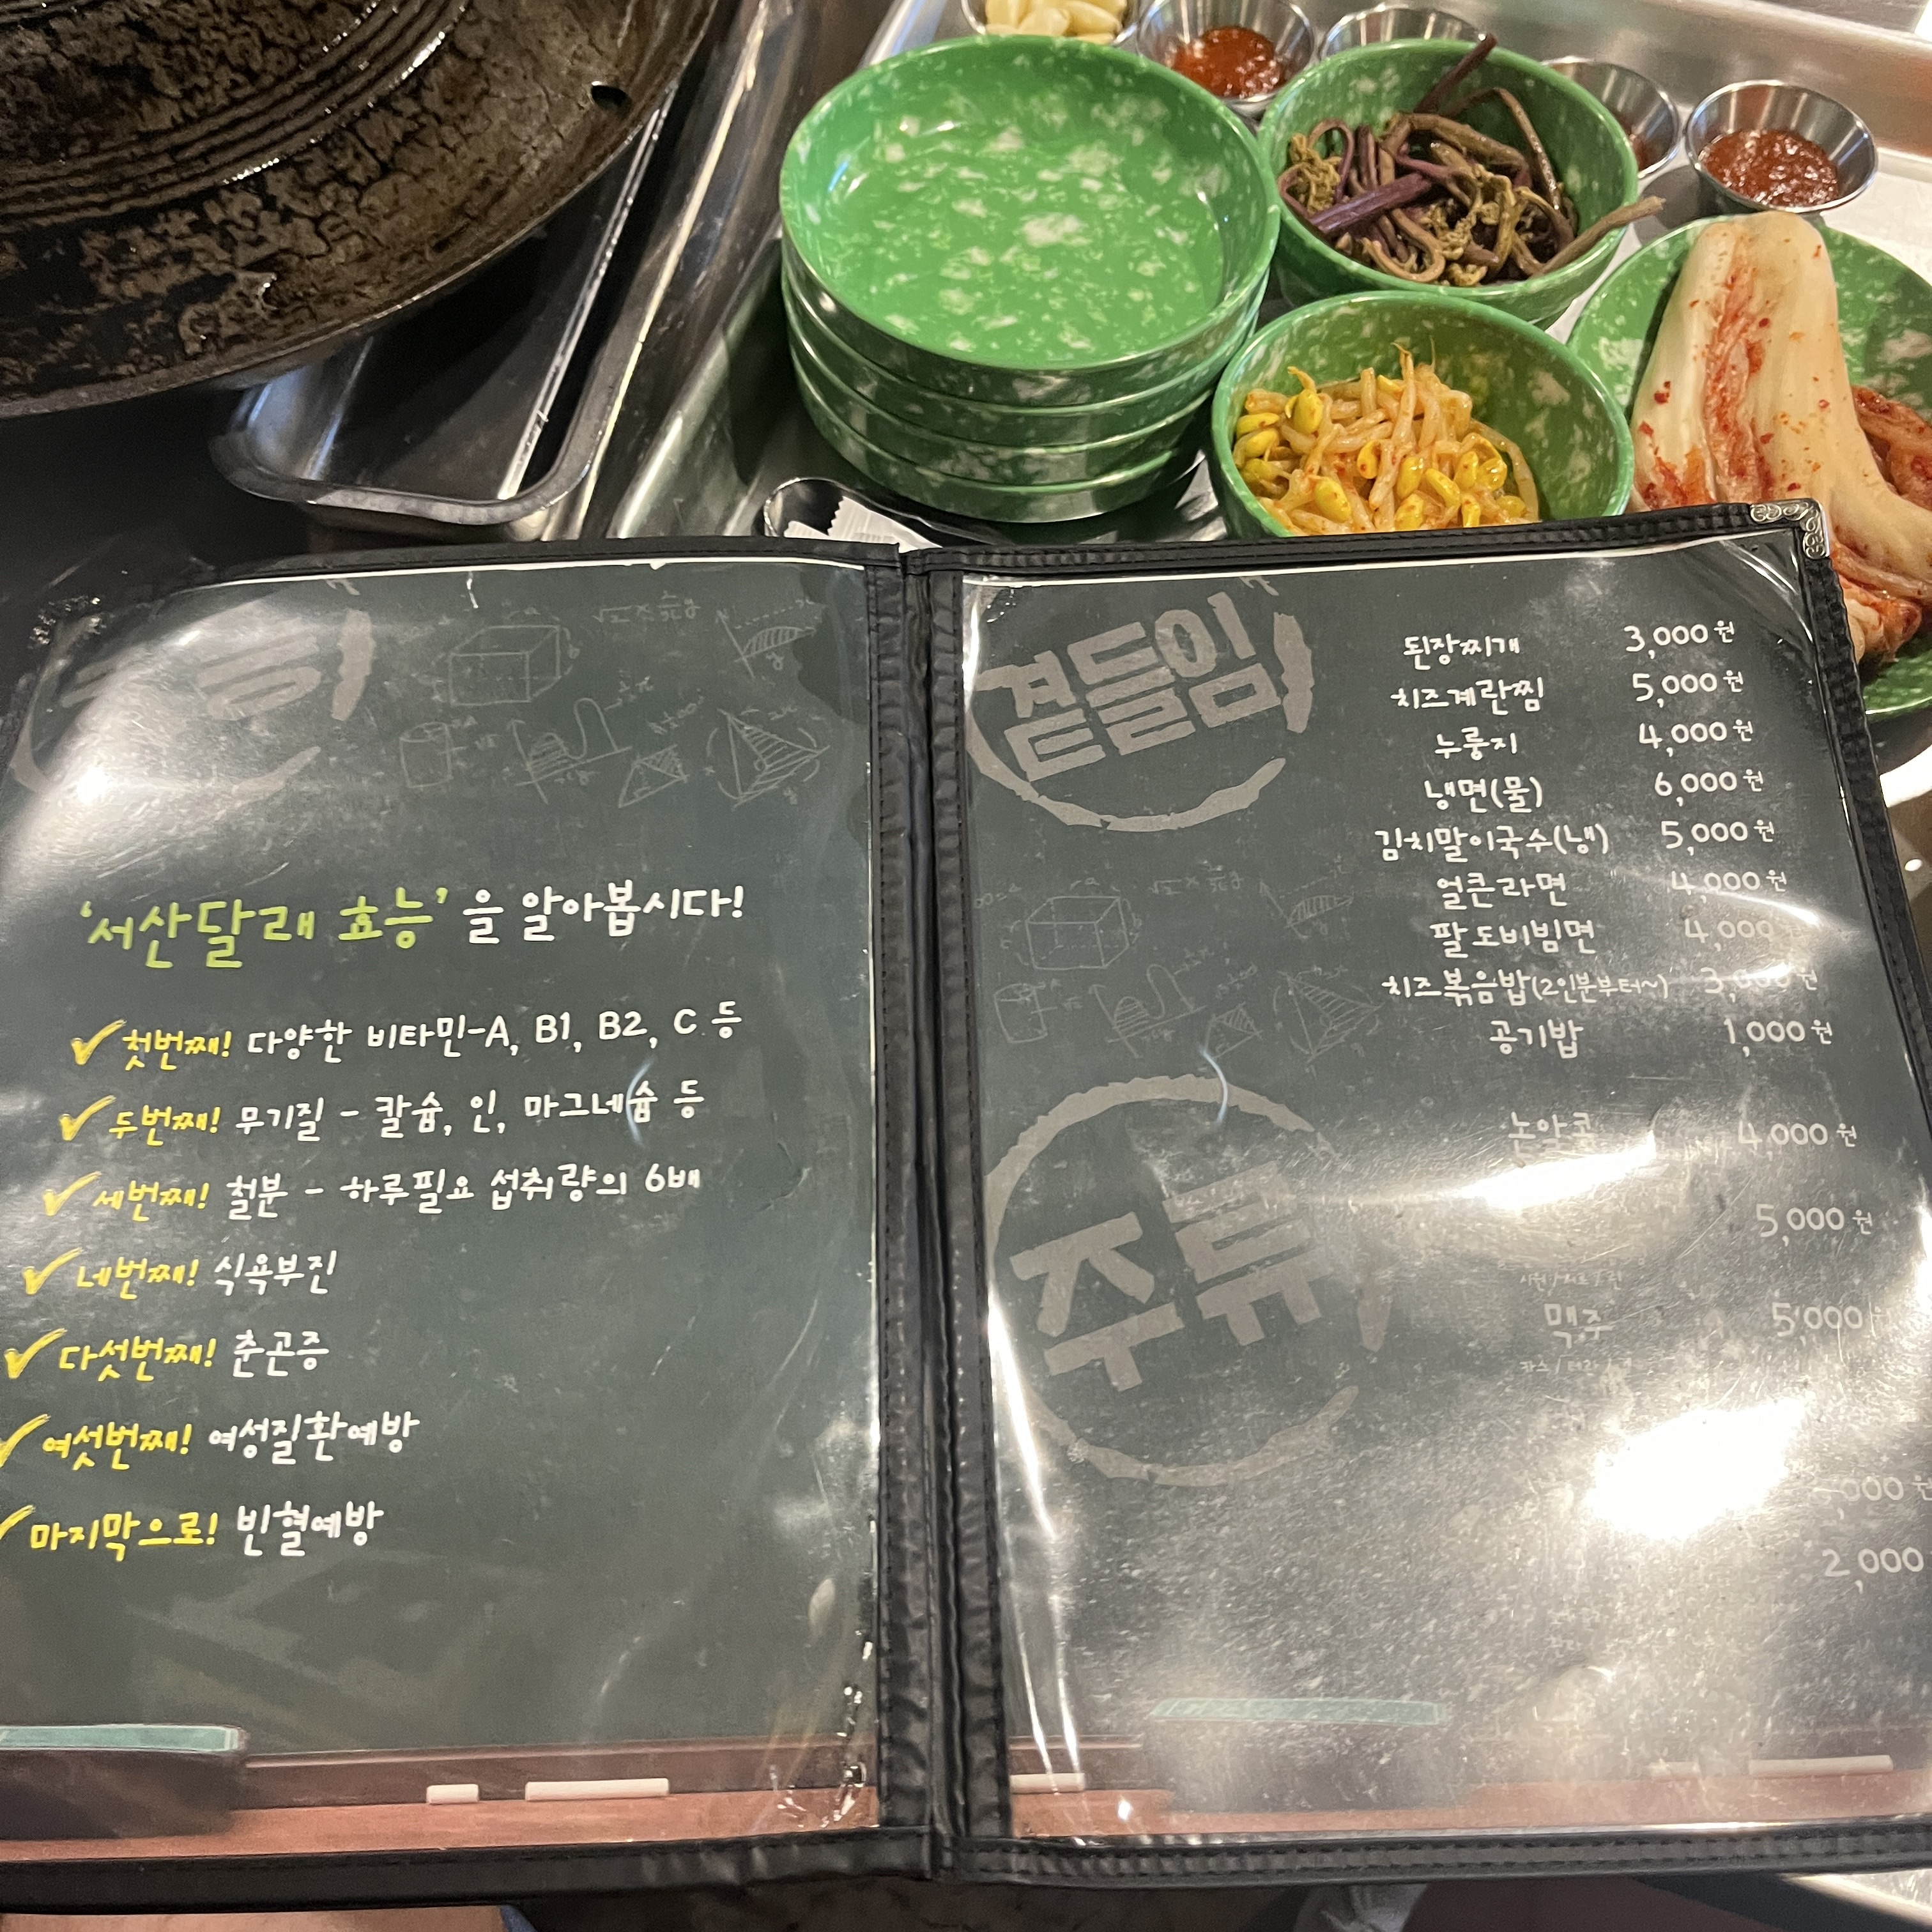 '서산달래 효능'을 알아봅시다!
첫번째! 다양한 비타민-A, B1, B2, C 등
두번째! 무기질 - 칼슘, 인, 마그네슘 등
세번째! 철분 - 하루필요 섭취량의 6배
네번째! 식욕부진
다섯번째! 춘곤증
여섯번째! 여성질환예방
마지막으로! 빈혈예방
곁들임
된장찌개 3,000원
치즈계란찜 5,000원
누룽지 4,000원
냉면(물) 6,000원
김치말이국수(냉) 5,000원
얼큰라면 4,000원
팔도비빔면 4,000원
치즈볶음밥(2인분부터~) 3,000원
공기밥 1,000원
주류
논알콜 4,000원
5,000원
맥주 5,000원
카스 / 테라 /
,000원
2,000